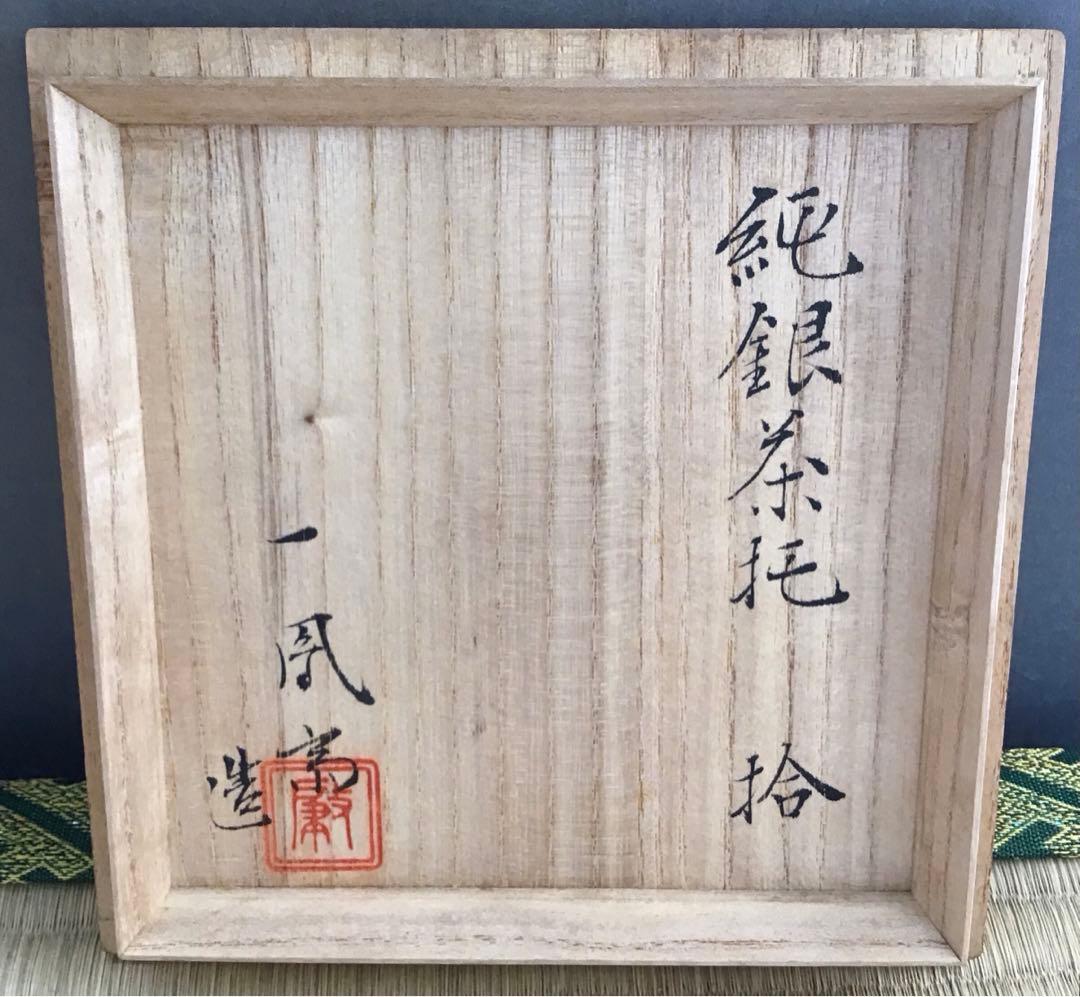 純銀茶托 拾
一凰斎
造